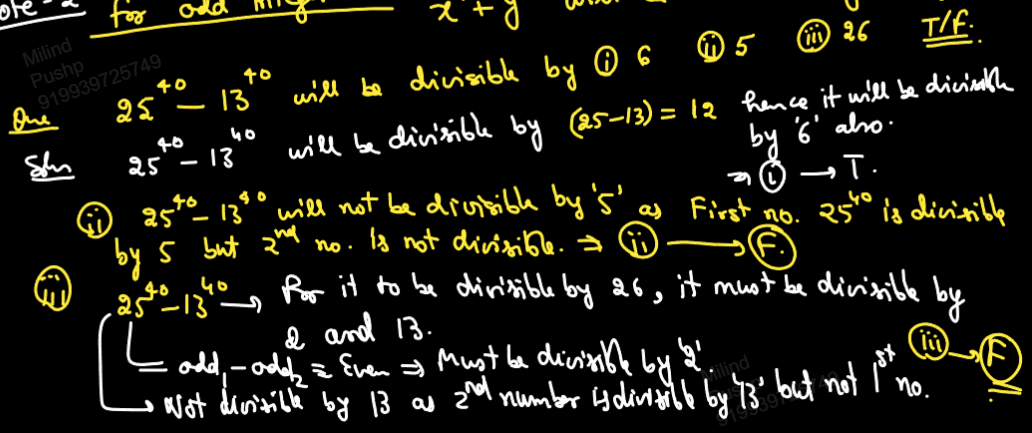 for odd
Milind
Pushp
919939725749
Que 25^40 – 13^40 will be divisible by (i) 6 (ii) 5 (iii) 26 T/F.
Soln 25^40 – 13^40 will be divisible by (25–13) = 12 hence it will be divisible
by '6' also.
⇒ (i) → T.
(ii) 25^40 – 13^40 will not be divisible by '5' as First no. 25^40 is divisible
by 5 but 2nd no. is not divisible. ⇒ (ii) → F.
(iii) 25^40 – 13^40 → For it to be divisible by 26, it must be divisible by
2 and 13.
odd1 – odd2 = Even ⇒ Must be divisible by '2'.
→ Not divisible by 13 as 2nd number is divisible by '13' but not 1st no.
(iii) → F
Milind